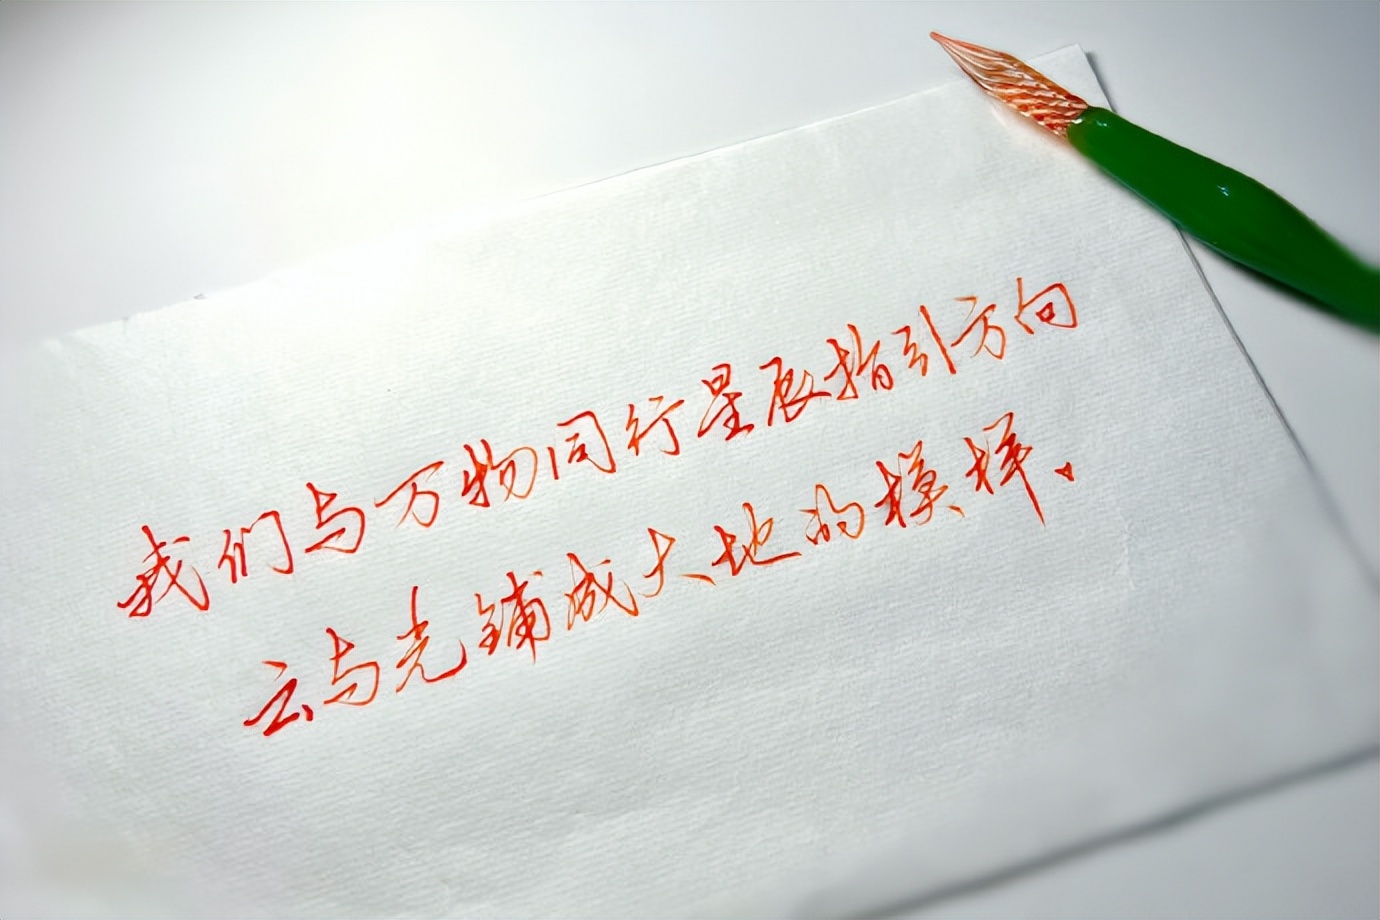 我们与万物同行星辰指引方向
云与光铺成大地的模样.